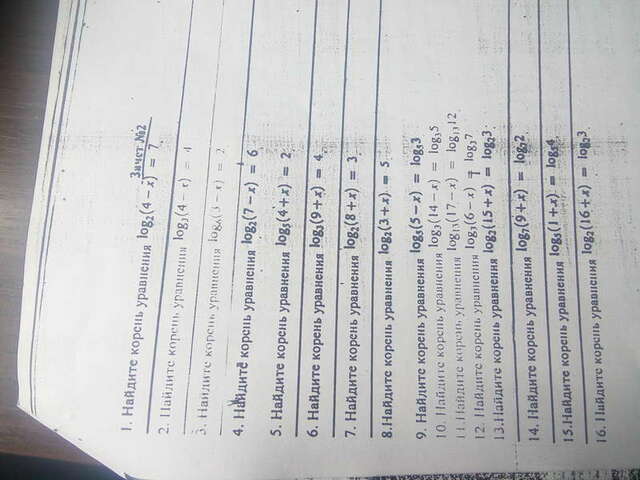 Зачет №2
1. Найдите корень уравнения log₂(4 − x) = 7
2. Найдите корень уравнения log₃(4 − x) = 4
3. Найдите корень уравнения − x) = 2
4. Найдите корень уравнения log₂(7 − x) = 6
5. Найдите корень уравнения log₅(4 + x) = 2
6. Найдите корень уравнения log₃(9 + x) = 4
7. Найдите корень уравнения log₂(8 + x) = 3
8.Найдите корень уравнения log₂(3 + x) = 5
9. Найдите корень уравнения log₅(5 − x) = log₅3
10. Найдите корень уравнения log₃(14 − x) = log₃5
11.Найдите корень уравнения log₁₃(17 − x) = log₁₃12
12. Найдите корень уравнения log₃(6 − x) = log₃7
13.Найдите корень уравнения log₂(15 + x) = log₂3
14. Найдите корень уравнения log₇(9 + x) = log₇2
15.Найдите корень уравнения log₅(1 + x) = log₅4
16. Найдите корень уравнения log₂(16 + x) = log₂3